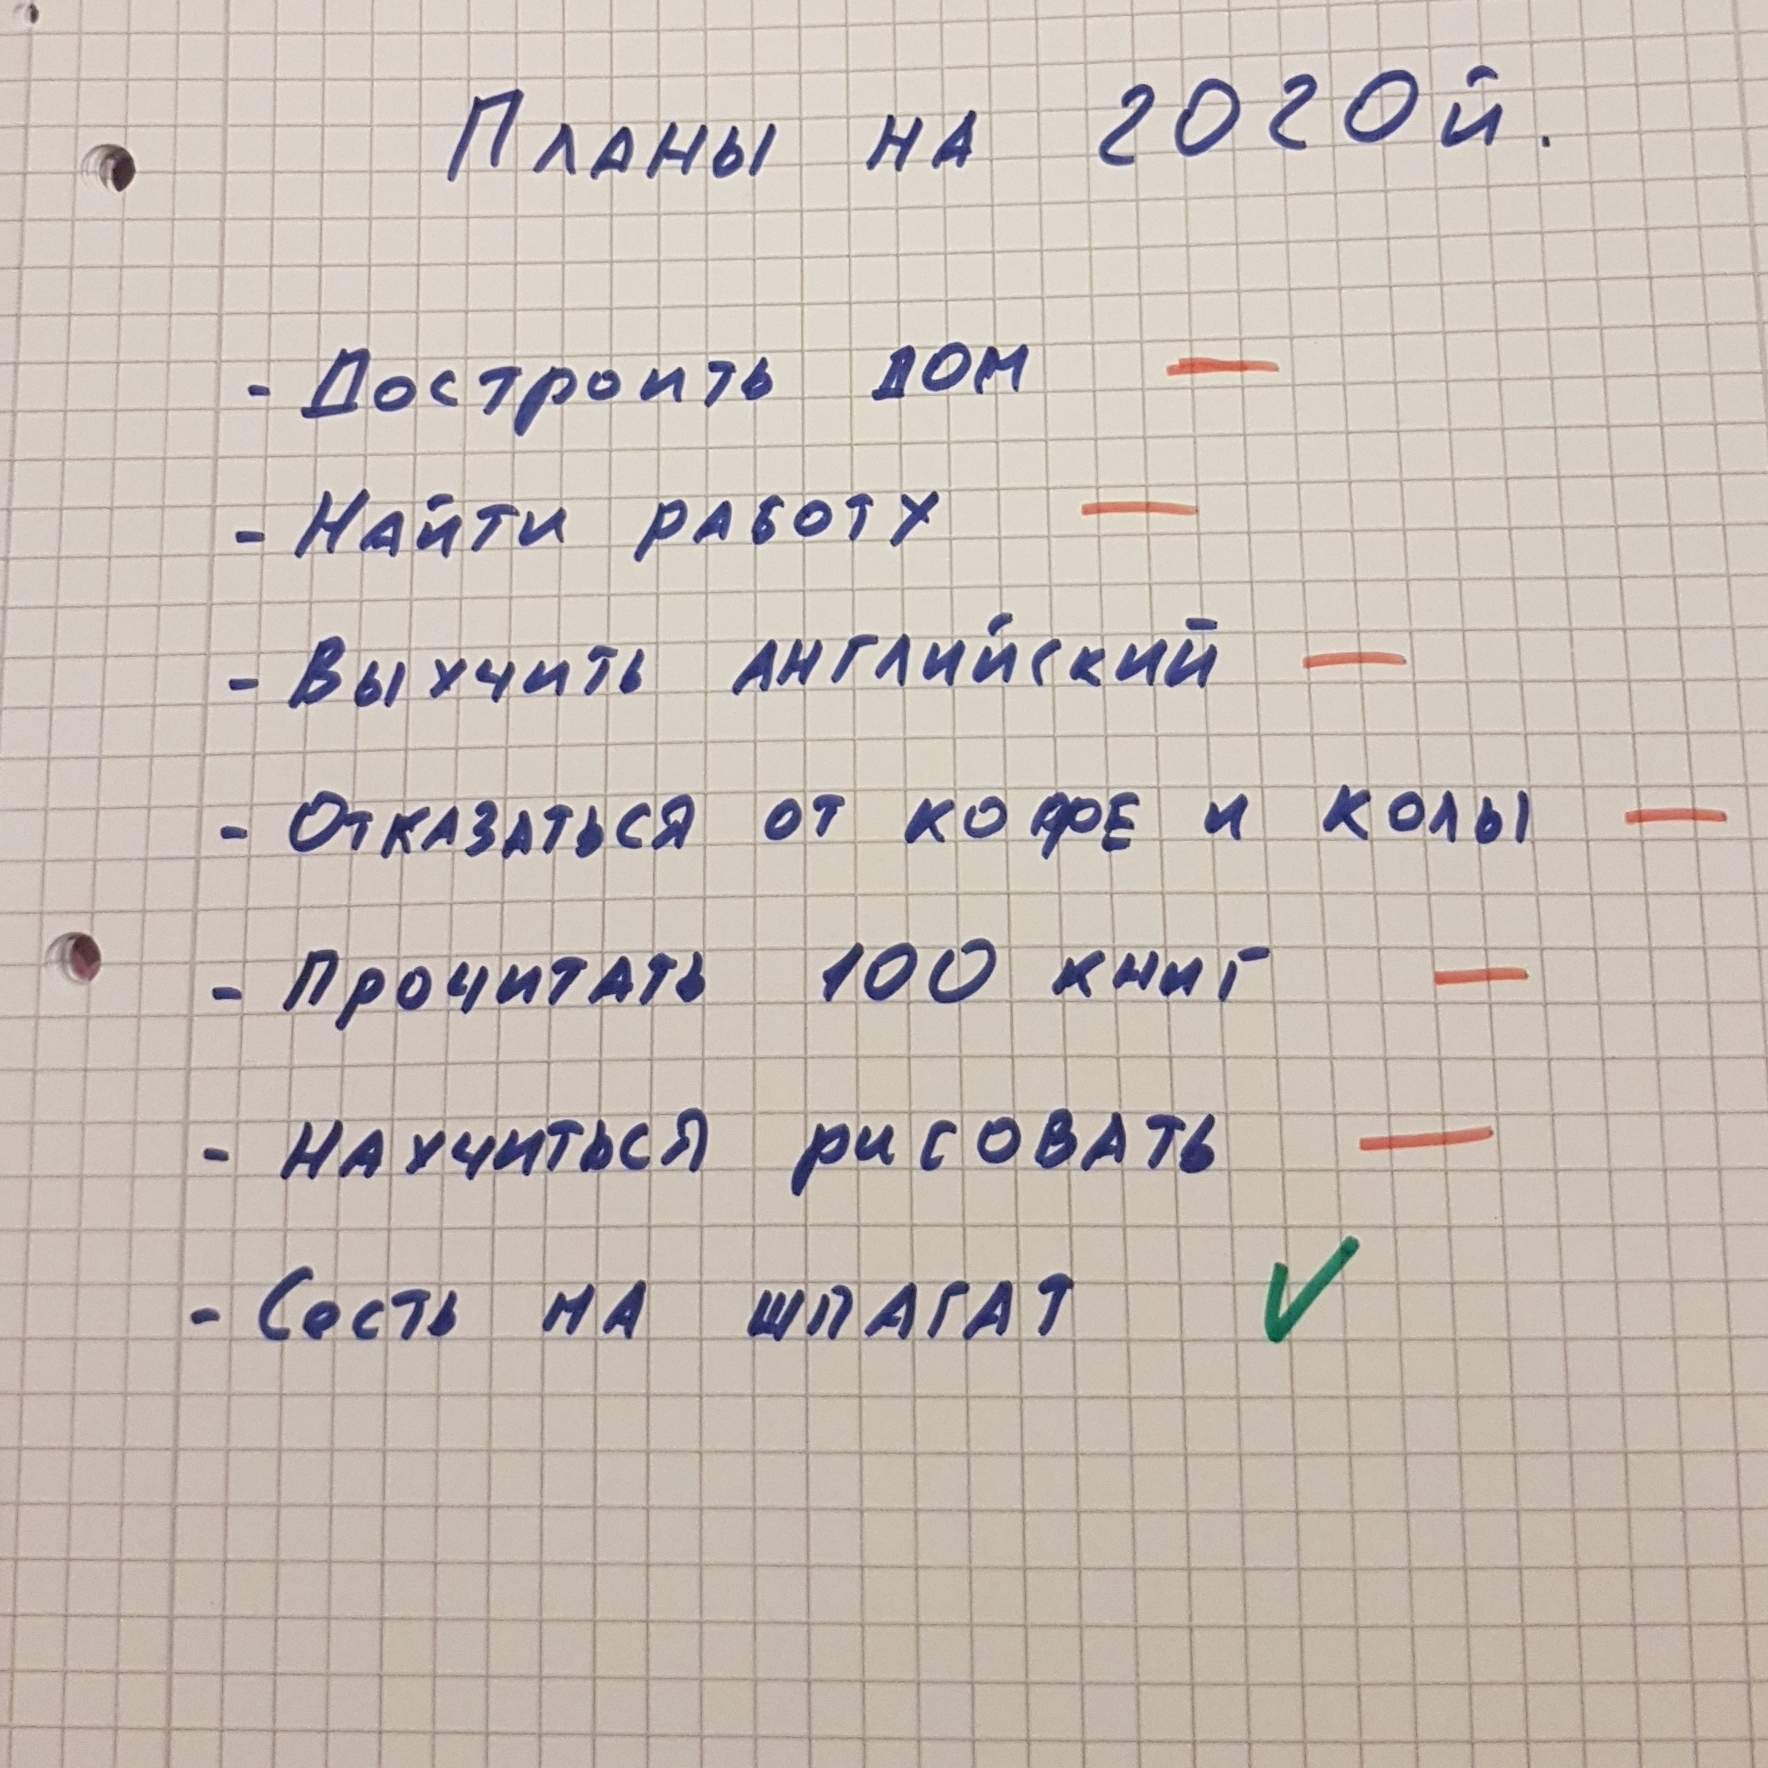 Планы на 2020й.
- Достроить дом —
- Найти работу —
- Выучить английский —
- Отказаться от кофе и колы —
- Прочитать 100 книг —
- Научиться рисовать —
- Сесть на шпагат ✓